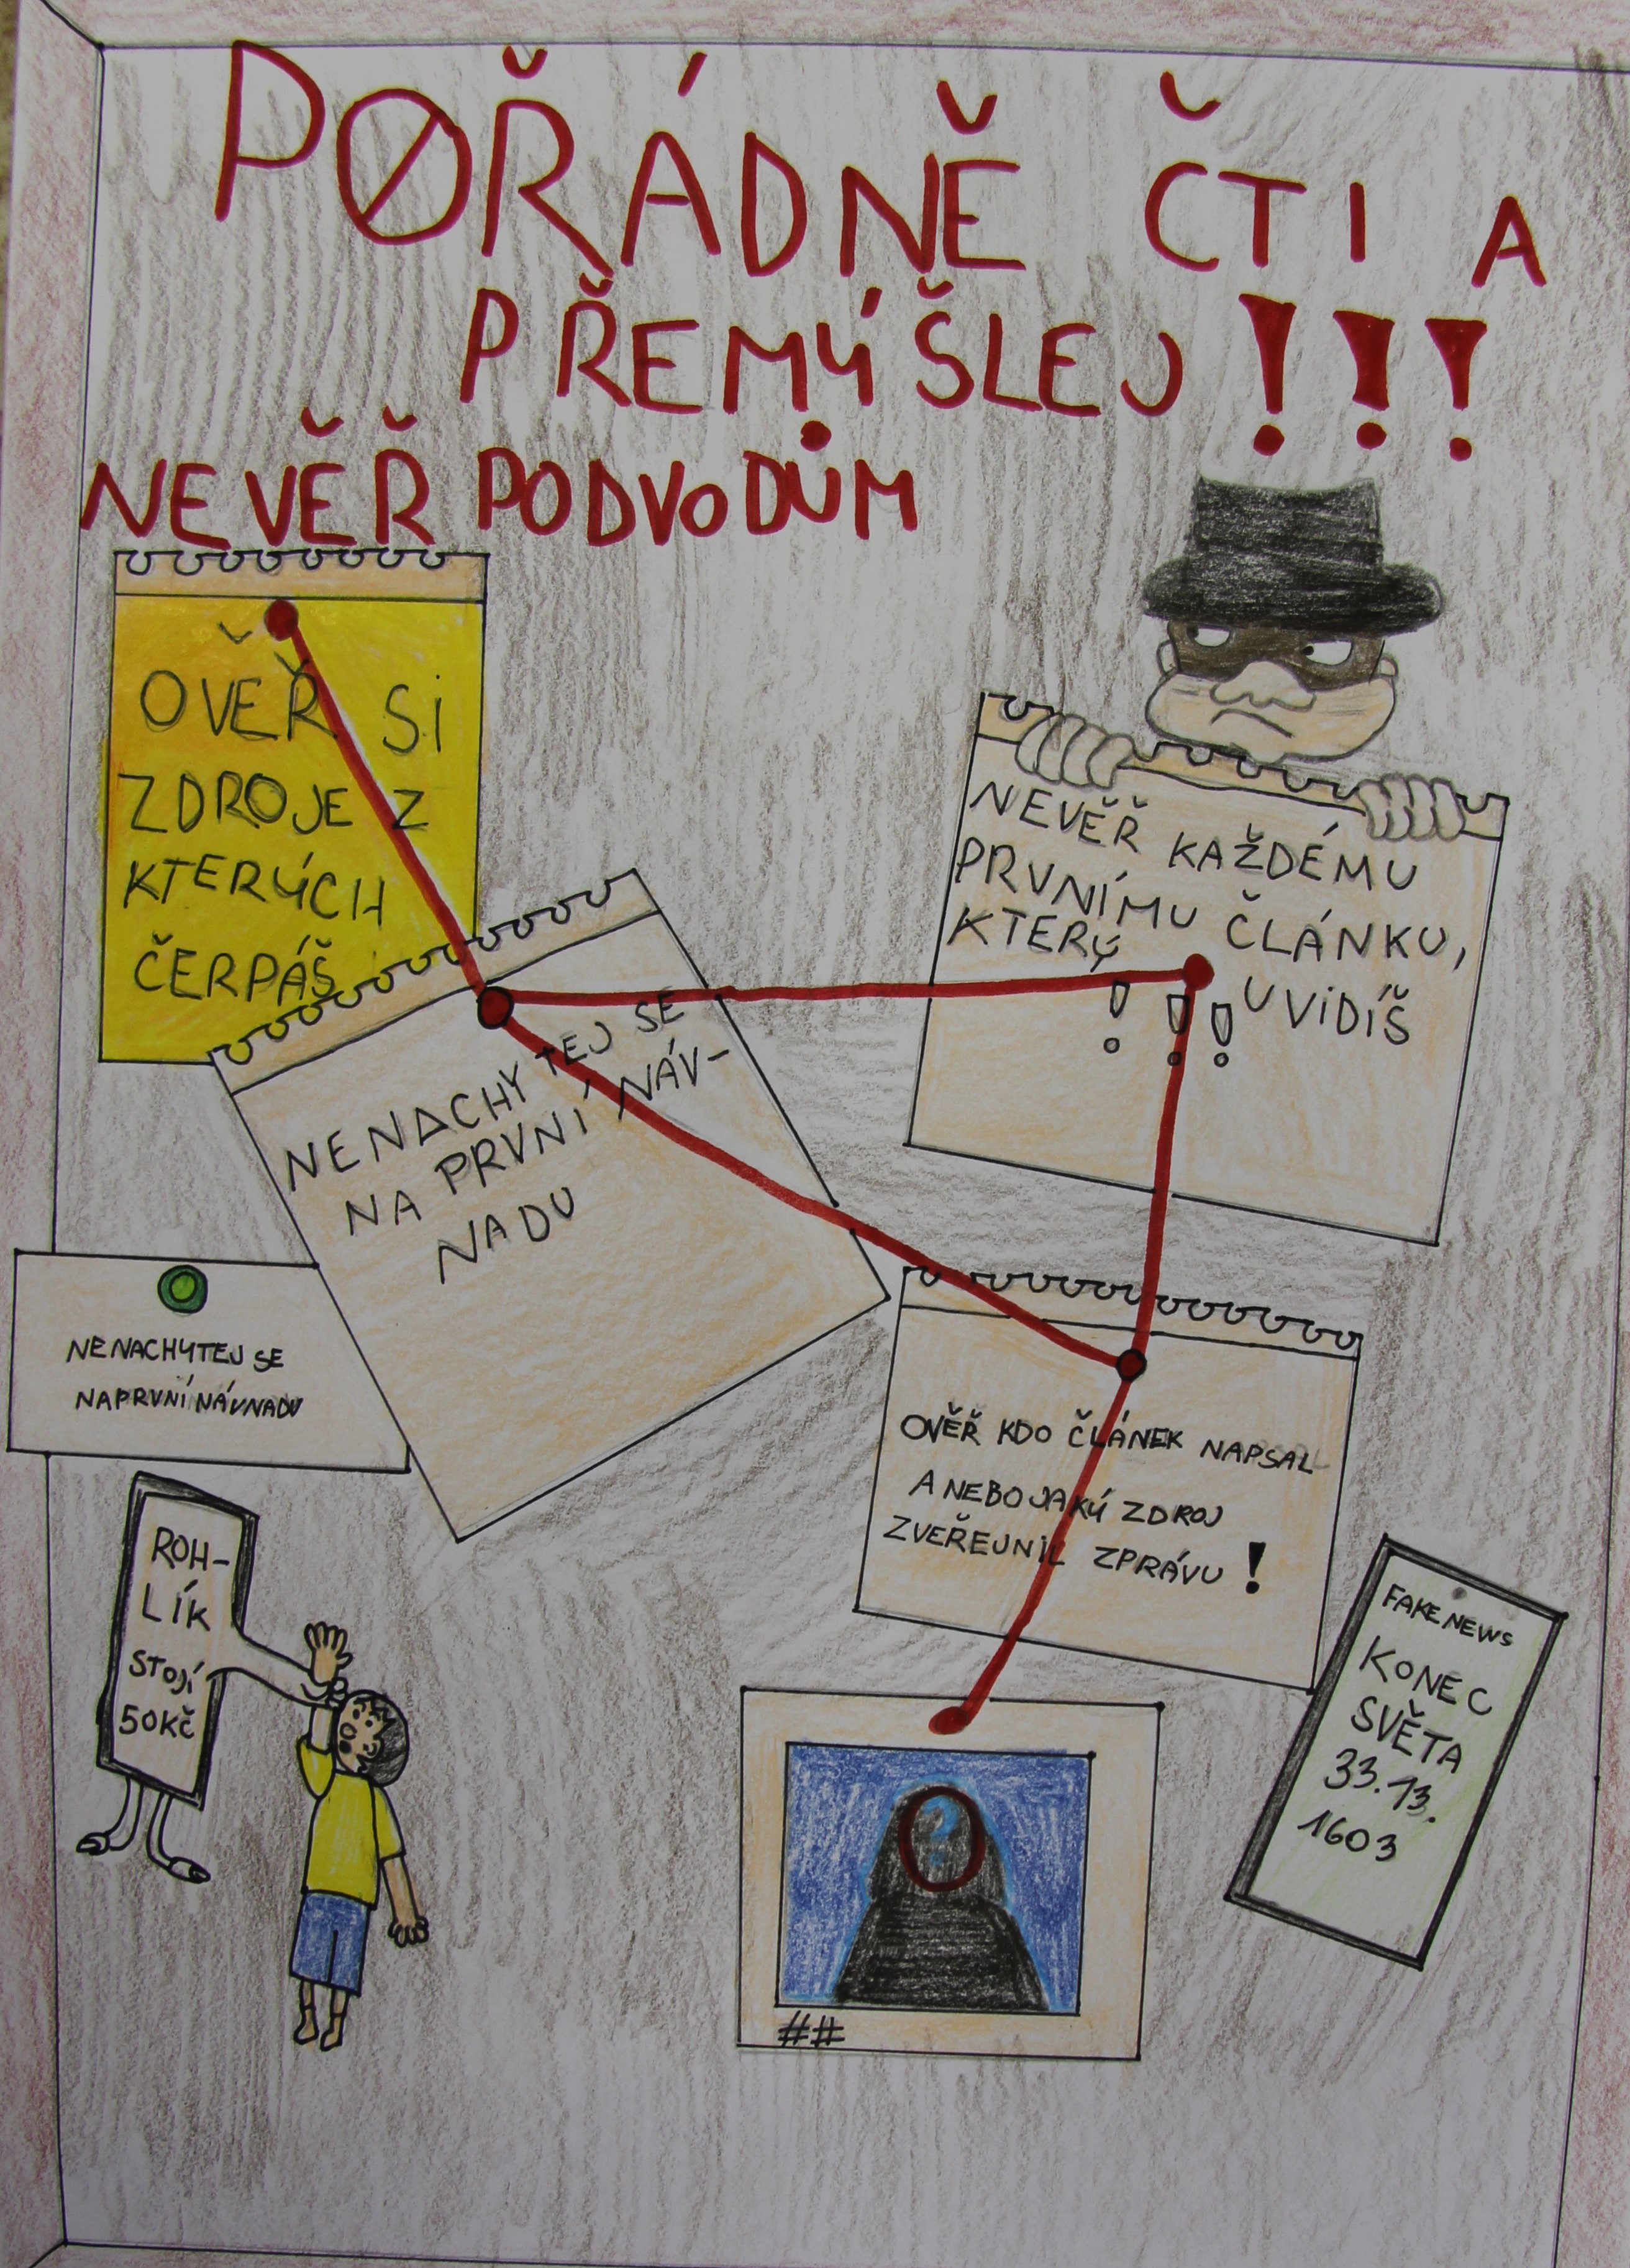 POŘÁDNĚ ČTI A
PŘEMÝŠLEJ!!!
NEVĚŘ PODVODŮM
OVĚŘ SI
ZDROJE Z
KTERÝCH
ČERPÁŠ
NEVĚŘ KAŽDÉMU
PRVNÍMU ČLÁNKU,
KTERÝ UVIDÍŠ
!!!
NENACHYTEJ SE
NA PRVNÍ NÁV-
NADU
NENACHYTEJ SE
NAPRVNÍ NÁVNADU
OVĚŘ KDO ČLÁNEK NAPSAL
A NEBO JAKÝ ZDROJ
ZVEŘEJNIL ZPRÁVU!
ROH-
LÍK
STOJÍ
50KČ
FAKE NEWS
KONEC
SVĚTA
33.13.
1603
?
##